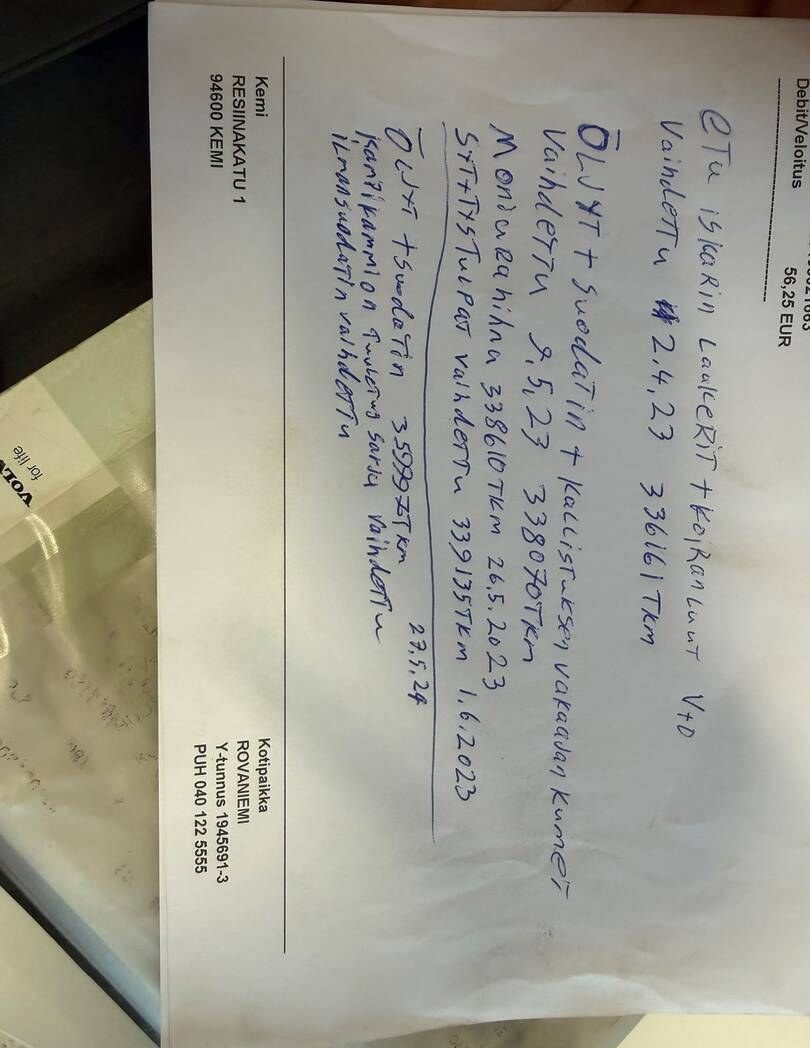 Debit/Veloitus
56,25 EUR
eTu iskarin Laakerit + Koiranluut V+O
Vaihdettu 2.4.23 336161 TKm
ÖLJYT + Suodatin + Kallistuksen vakaajan Kumet
Vaihdettu 9.5.23 338070 TKm
Moniurahihna 338610 TKM 26.5.2023
SYTYTYSTulpat vaihdettu 339135 TKM 1.6.2023
ÖLJYT + Suodatin TKm 27.5.24
Kampikammion Tuuletus Sarja vaihdettu
ilmansuodatin vaihdettu
Kemi
RESIINAKATU 1
94600 KEMI
Kotipaikka
ROVANIEMI
Y-tunnus 1945691-3
PUH 040 122 5555
for life